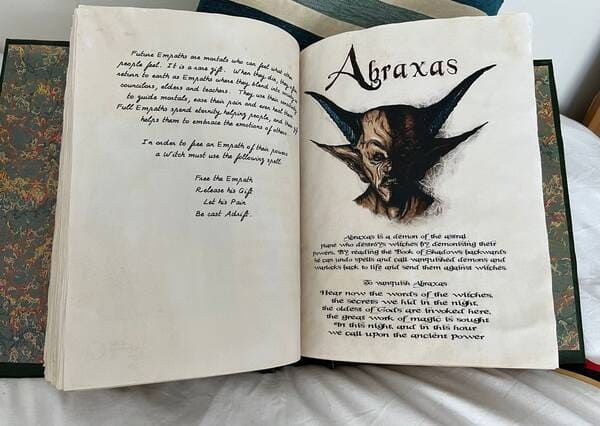 Future Empaths are mortals who can feel what other
people feel. It is a rare gift. When they die, they often
return to earth as Empaths where they blend into society as
councilors, elders and teachers. They use their
to guide mortals, ease their pain and even heal them.
Full Empaths spend eternity helping people, and their
helps them to embrace the emotions of others.
In order to free an Empath of their powers
a Witch must use the following spell.
Free the Empath
Release his Gift
Let his Pain
Be cast Adrift.
Abraxas
Abraxas is a demon of the astral
plane who destroys witches by demonising their
powers. By reading the Book of Shadows backwards
he can undo spells and call vanquished demons and
warlocks back to life and send them against witches.
To vanquish Abraxas
Hear now the words of the witches,
the secrets we hid in the night,
the oldest of Gods are invoked here,
the great work of magic is sought
"In this night, and in this hour
we call upon the ancient power